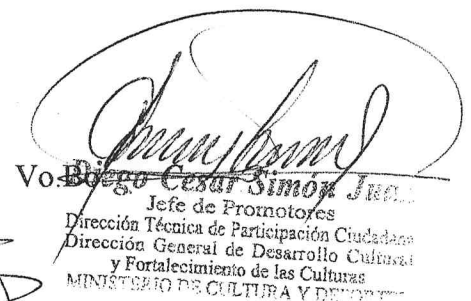 Vo.Bo.
Diego Cesar Simón Jua
Jefe de Promotores
Dirección Técnica de Participación Ciudadana
Dirección General de Desarrollo Cultural
y Fortalecimiento de las Culturas
MINISTERIO DE CULTURA Y DEPORTES